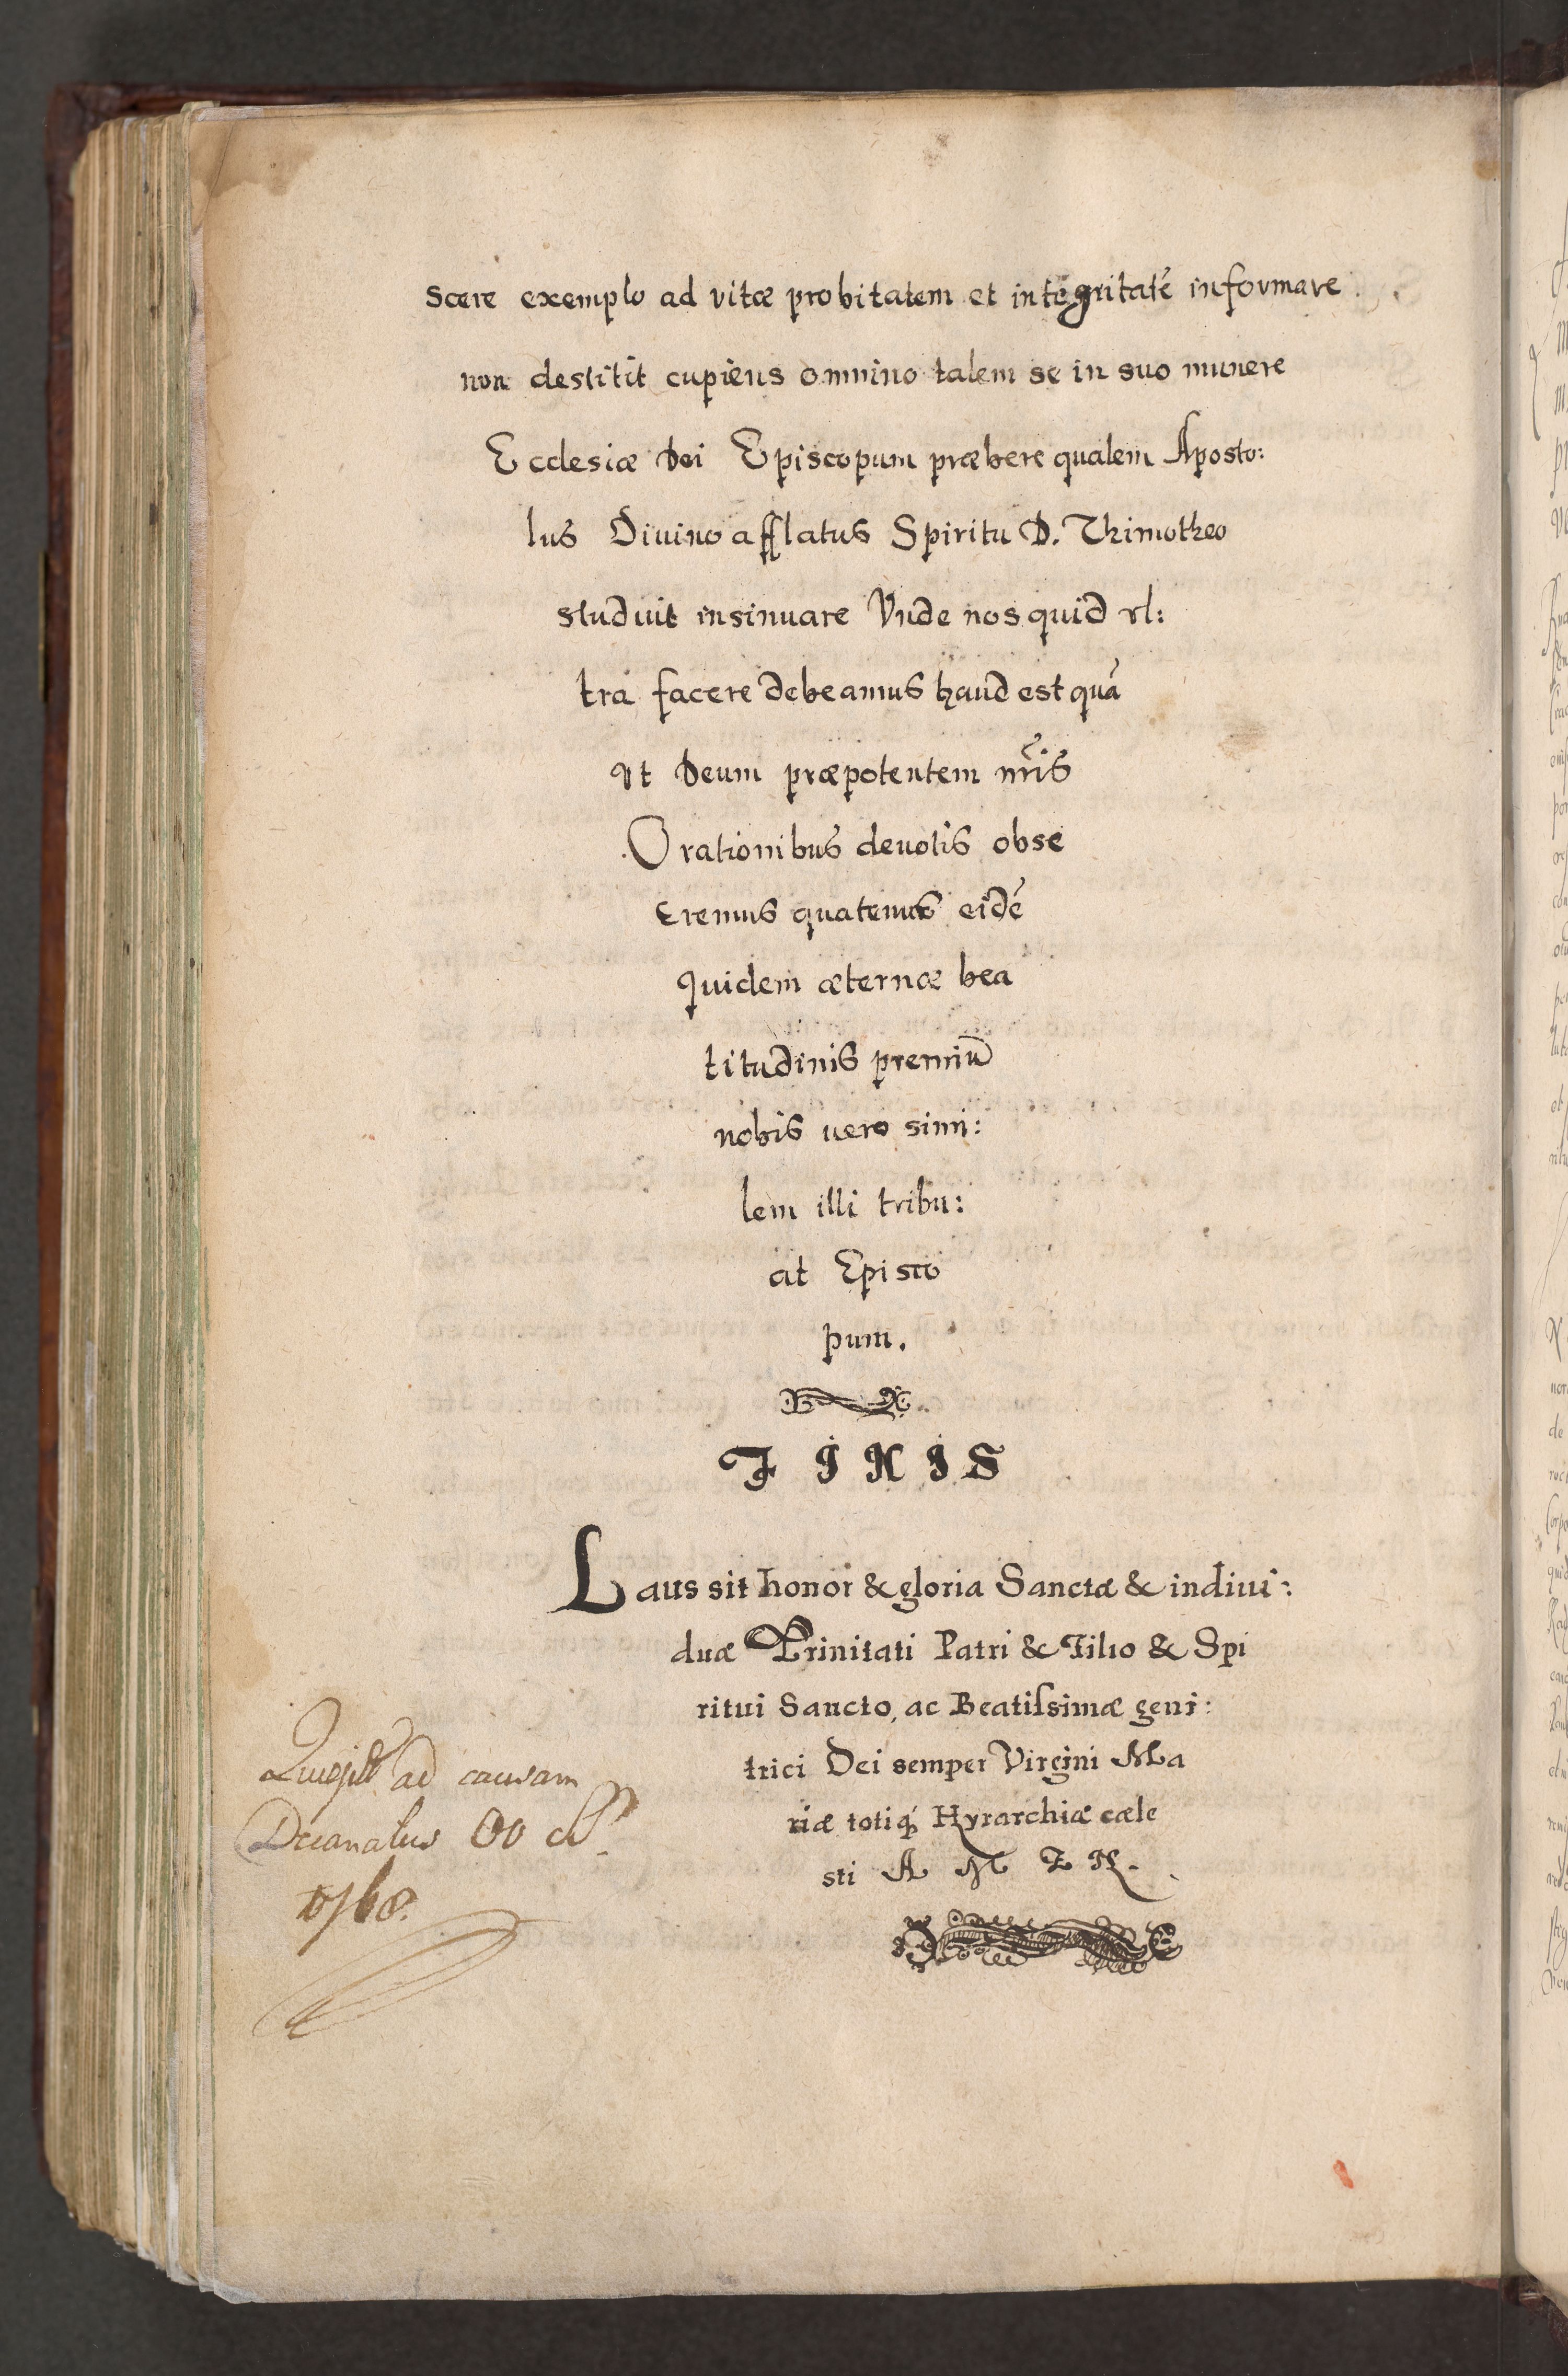 scere exemplo ad vitæ probitatem et integritatē informare
non destitit cupiens omnino talem se in suo munere
Ecclesiæ Dei Episcopum præbere qualem Aposto:
lus Diuino afflatus Spiritu D. Thimotheo
studuit insinuare Vnde nos quid vl:
tra facere debeamus haud est quā
vt Deum præpotentem nr̃is
Orationibus deuotis obse
cremus quatenus eidē
quidem æternæ bea
titudinis premiū
nobis uero simi:
lem illi tribu:
at Episco
pum.
FINIS
Laus sit honor & gloria Sanctæ & indiui:
duæ Trinitati Patri & Filio & Spi
ritui Sancto, ac Beatissimæ geni:
trici Dei semper Virgini Ma
riæ totiq́ Hyrarchiæ cæle
sti AMEN.
ad causam
Decanatus